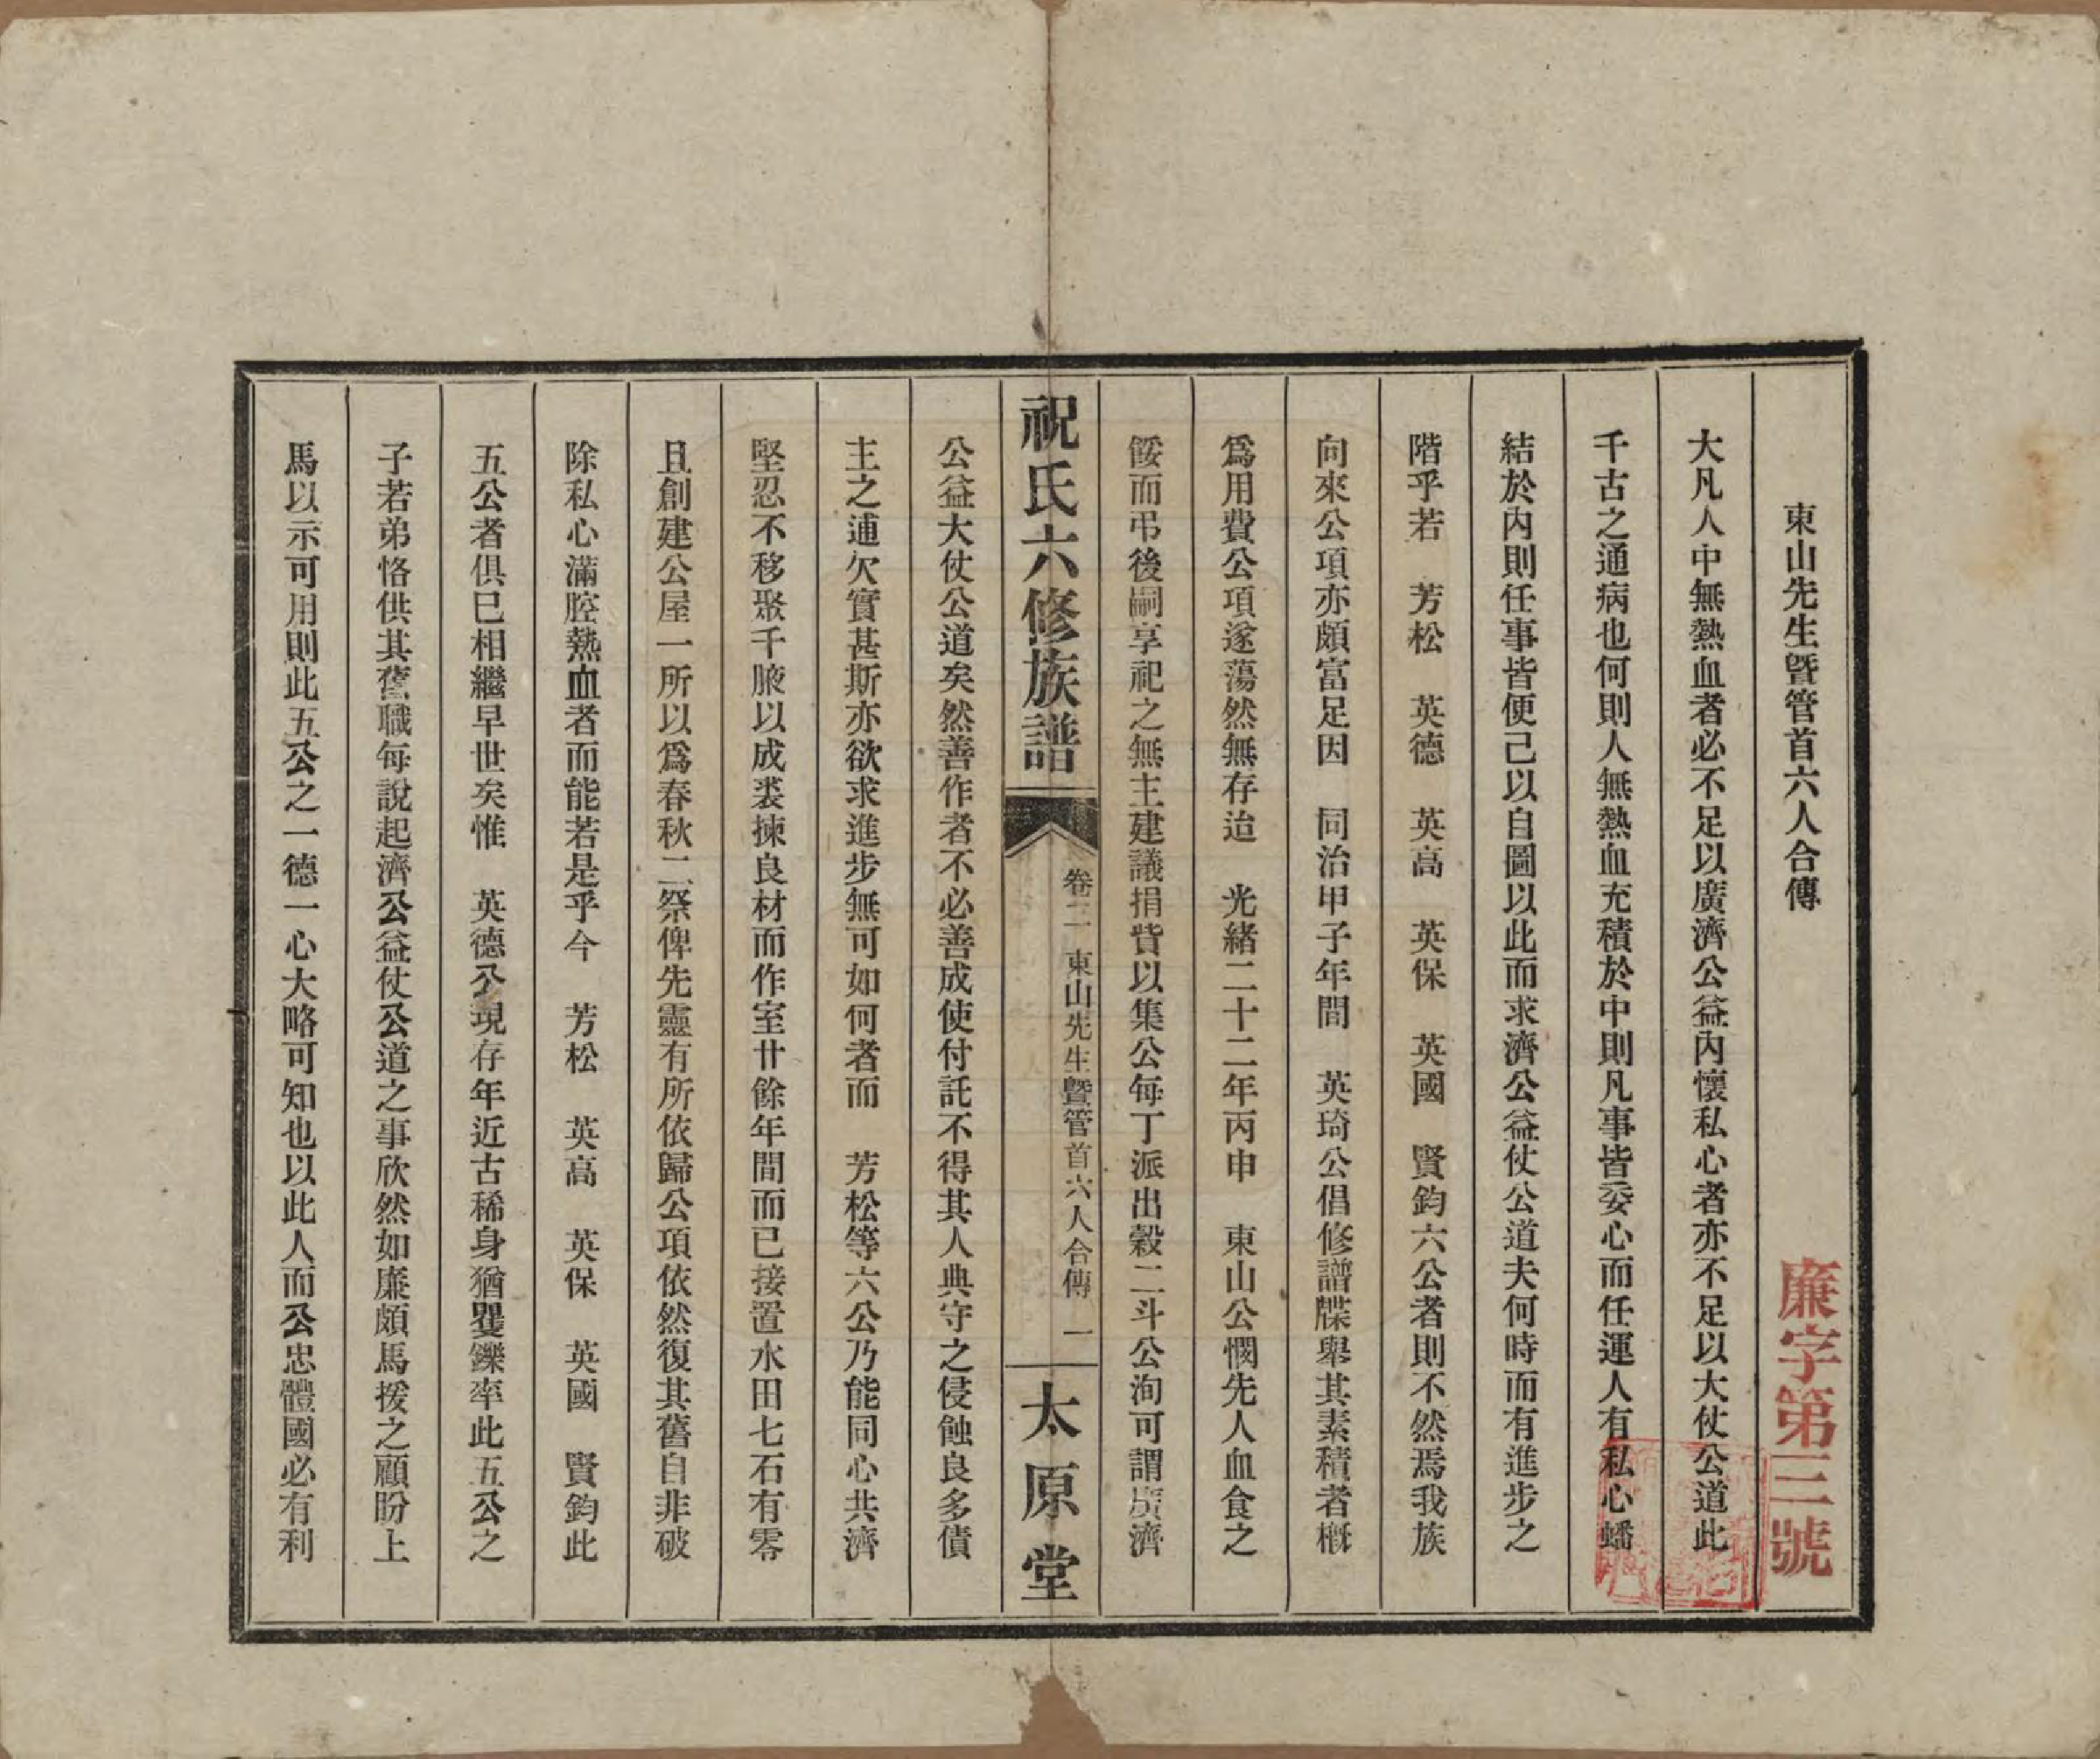 東山先生曁管首六人合傳
廉字第三號
大凡人中無熱血者必不足以廣濟公益內懷私心者亦不足以大仗公道此
千古之通病也何則人無熱血充積於中則凡事皆委心而任運人有私心蟠
結於內則任事皆便己以自圖以此而求濟公益仗公道夫何時而有進步之
階乎若　芳松　英德　英高　英保　英國　賢鈞六公者則不然焉我族
向來公項亦頗富足因　同治甲子年間　英琦公倡修譜牒舉其素積者槪
爲用費公項遂蕩然無存迨　光緒二十二年丙申　東山公憫先人血食之
餒而弔後嗣享祀之無主建議捐貲以集公每丁派出穀二斗公洵可謂廣濟
祝氏六修族譜
卷二　東山先生曁管首六人合傳　一
太原堂
公益大仗公道矣然善作者不必善成使付託不得其人典守之侵蝕良多債
主之逋欠實甚斯亦欲求進步無可如何者而　芳松等六公乃能同心共濟
堅忍不移聚千腋以成裘揀良材而作室廿餘年間而已接置水田七石有零
且創建公屋一所以爲春秋二祭俾先靈有所依歸公項依然復其舊自非破
除私心滿腔熱血者而能若是乎今　芳松　英高　英保　英國　賢鈞此
五公者俱已相繼早世矣惟　英德公現存年近古稀身猶矍鑠率此五公之
子若弟恪供其舊職每說起濟公益仗公道之事欣然如廉頗馬援之顧盼上
馬以示可用則此五公之一德一心大略可知也以此人而公忠體國必有利